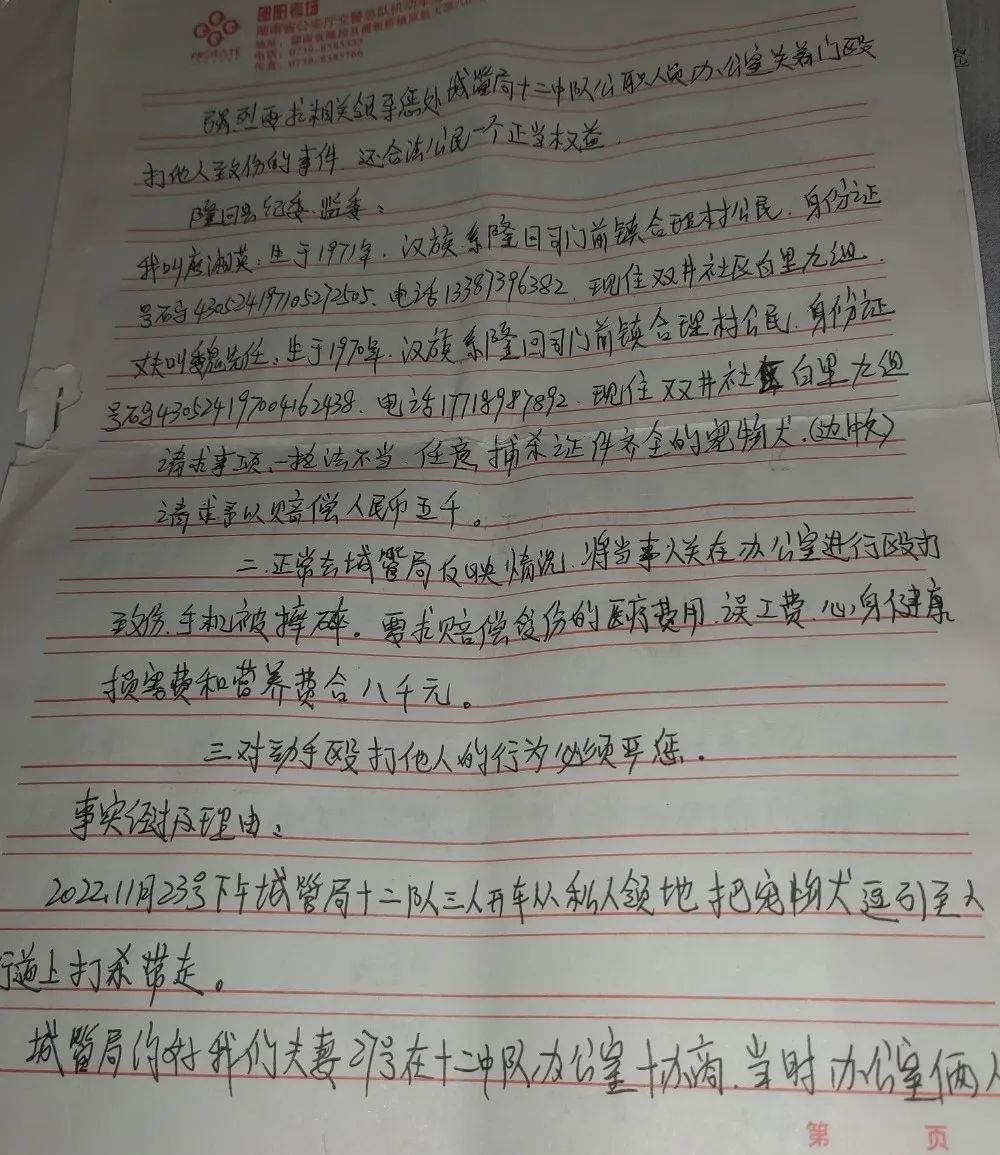 邵阳考场
湖南省公安厅交警总队机动车
PROBATE
电话：0739-8585555
传真：0739-8585766
究
强烈要求相关领导惩处城管局十二中队公职人员办公室关着门殴
打他人致伤的事件.还合法公民一个正当权益.
隆回县纪委.监委：
我叫 湘英.生于1971年.汉族.系隆回司门前镇合理村公民.身份证
号码430524197105272505.电话13387396382.现住双井社区白里九组.
丈夫叫魏先任.生于1970年.汉族.系隆回司门前镇合理村公民.身份证
号码430524197004162438.电话17718987892.现住双井社区白里九组
请求事项.一执法不当.任意捕杀证件齐全的宠物犬.(边牧)
请求予以赔偿人民币五千。
二.正常去城管局反映情况.将当事人关在办公室进行殴打
致伤.手机被摔碎。要求赔偿受伤的医疗费用.误工费.心身健康
损害费和营养费合八千元。
三对动手殴打他人的行为必须严惩.
事实经过及理由：
2022.11月23号下午城管局十二队三人开车从私人领地把宠物犬逗引至人
行道上打杀带走。
城管局约好我们夫妻27号在十二中队办公室协商.当时办公室俩人
第 页